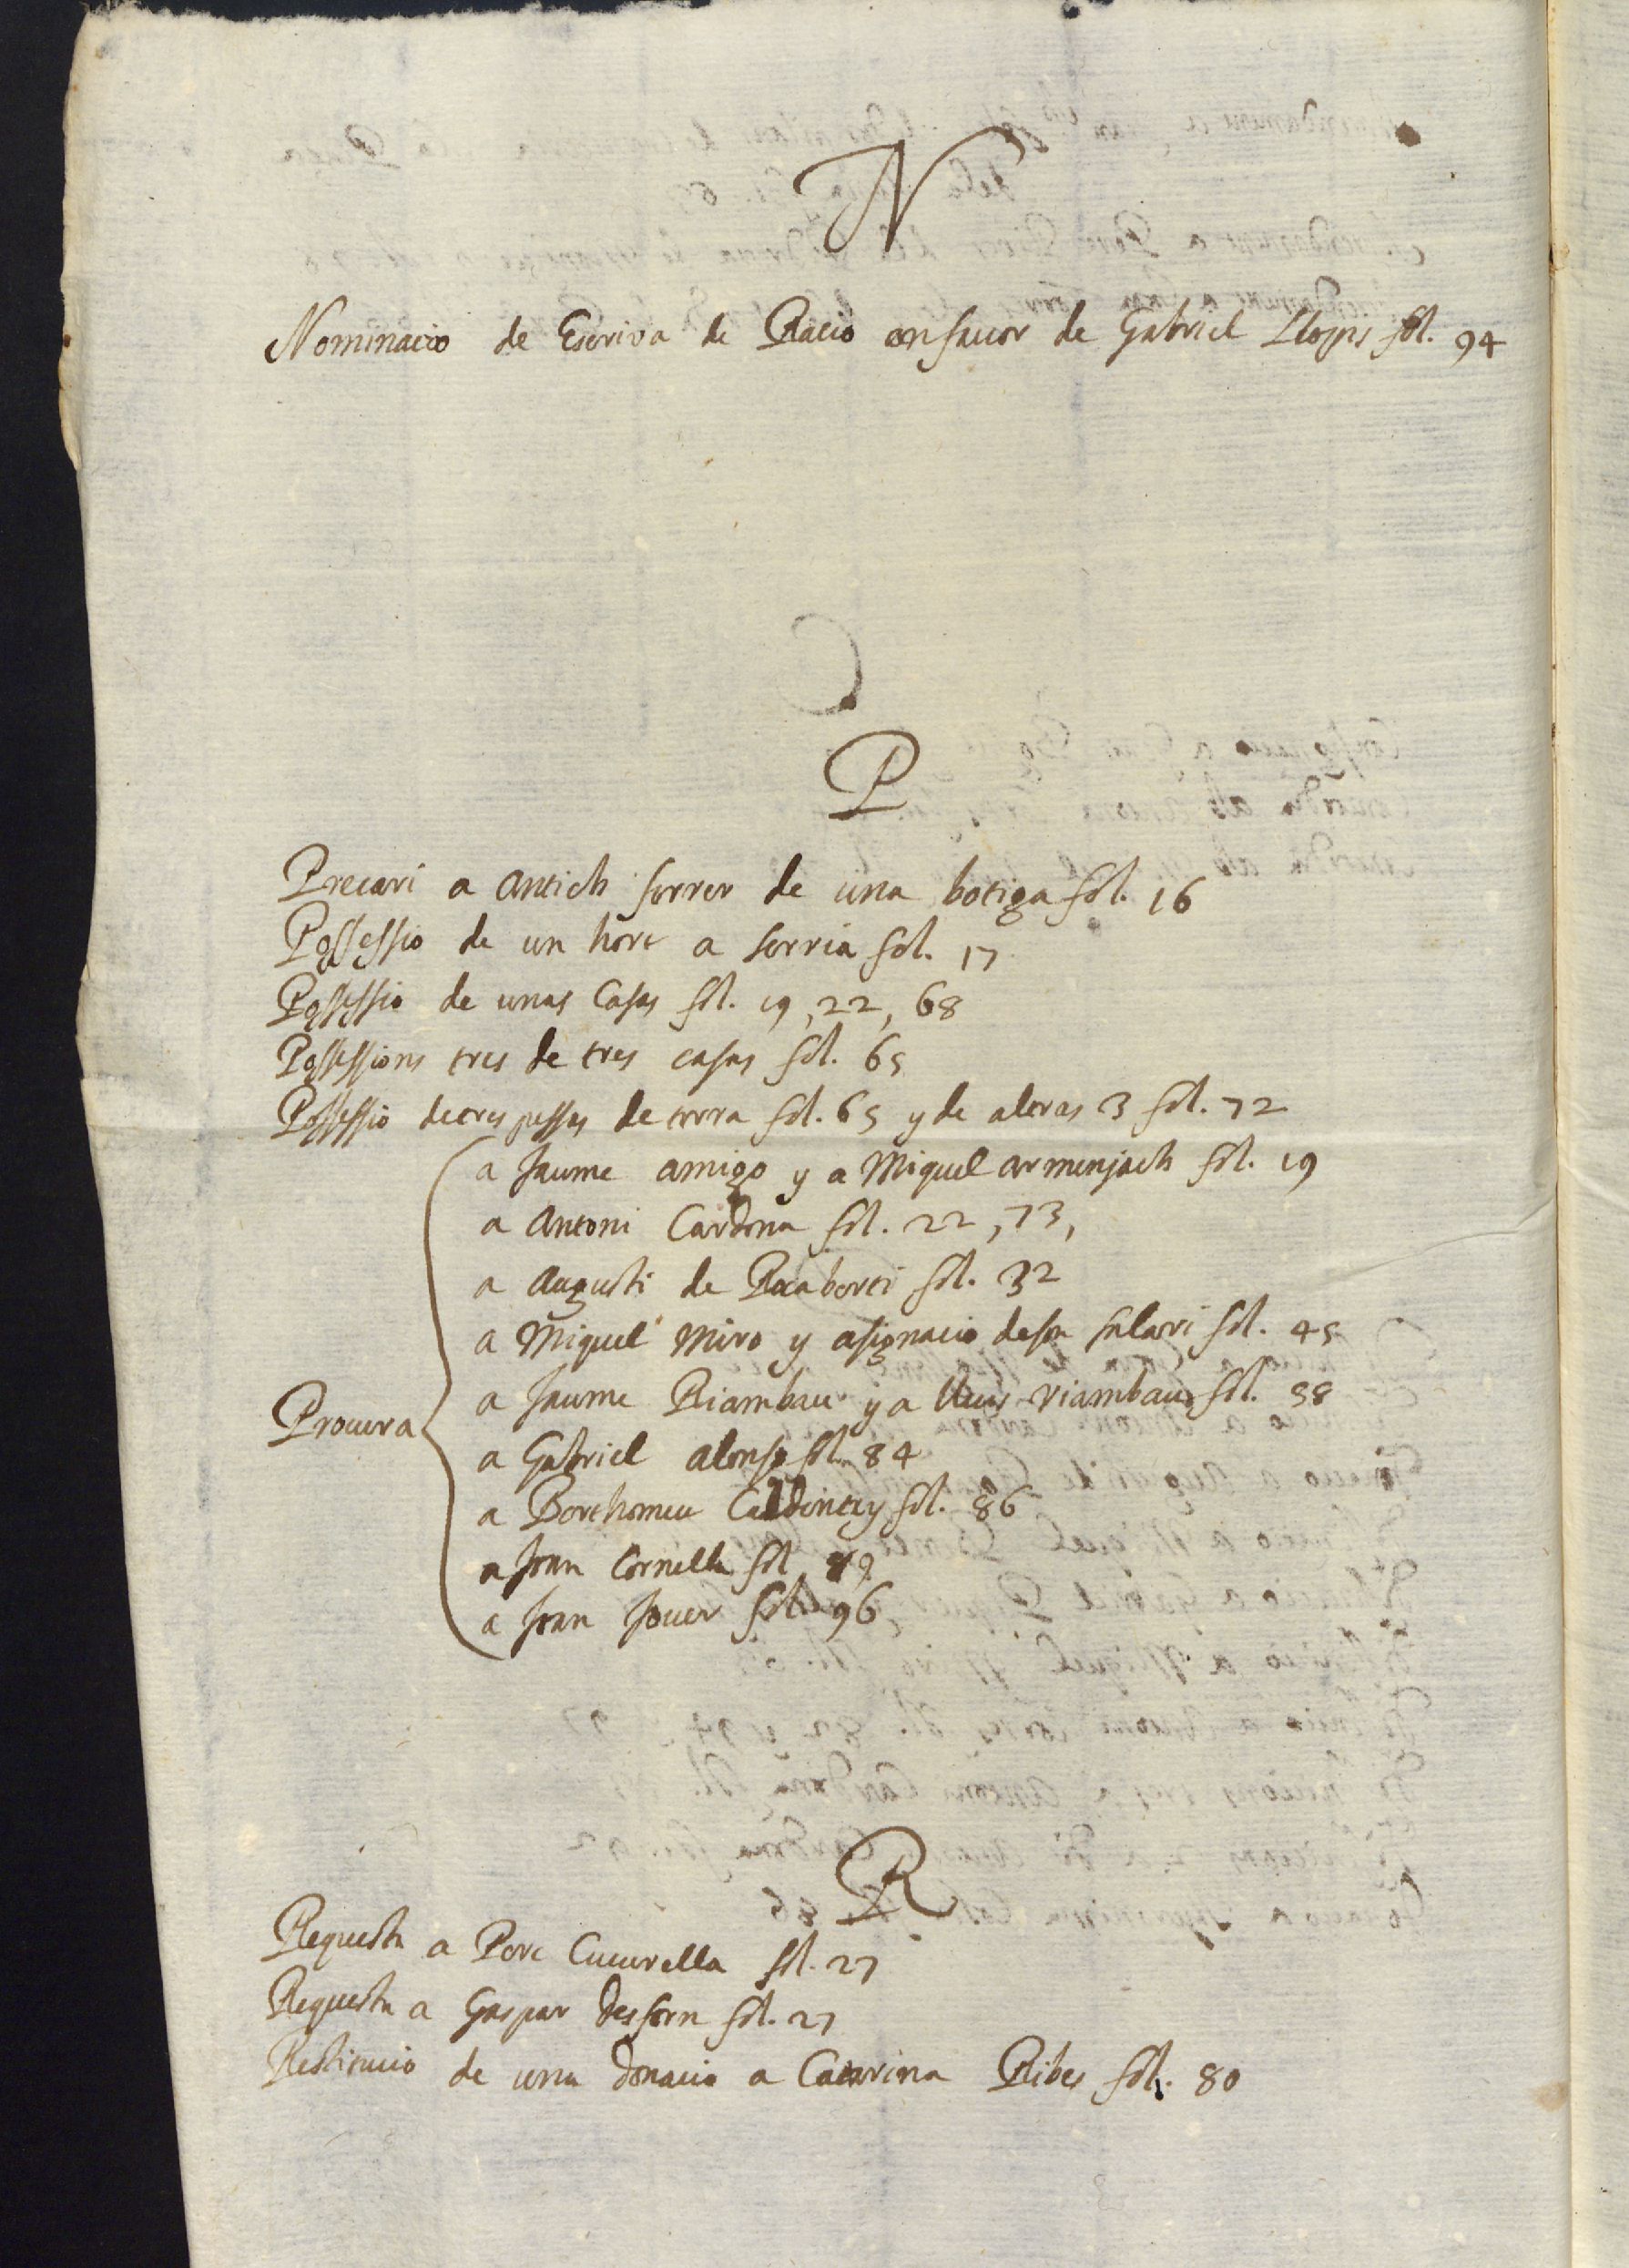 N
Nominacio de Escriva de Racio en favor de Gabriel Llopis fol. 94
P
Precari a Antich ferrer de una botiga fol. 16
Possessio de un hort a serria fol. 17
Possessio de unas Casas fol. 19, 22, 68
Possessions tres de tres casas fol. 65
Possessio de tres pessas de terra fol. 65 y de altras 3 fol. 72
a Jaume amigo y a Miquel armenjach fol. 19
a Antoni Cardona fol. 22, 73,
a Augusti de Rocaberti fol. 32
a Miquel Miro y asignacio de son salari fol. 45
Procura
a Jaume Riambau y a Lluys riambau fol. 58
a Gabriel alonso fol. 84
a Borthomeu Caldentey fol. 86
a Joan Cornella fol 89
a Joan Jover fol. 96
R
Requesta a Pere Cucurella fol. 27
Requesta a Gaspar desforn fol. 27
Restitucio de una donacio a Catarina Ribes fol. 80